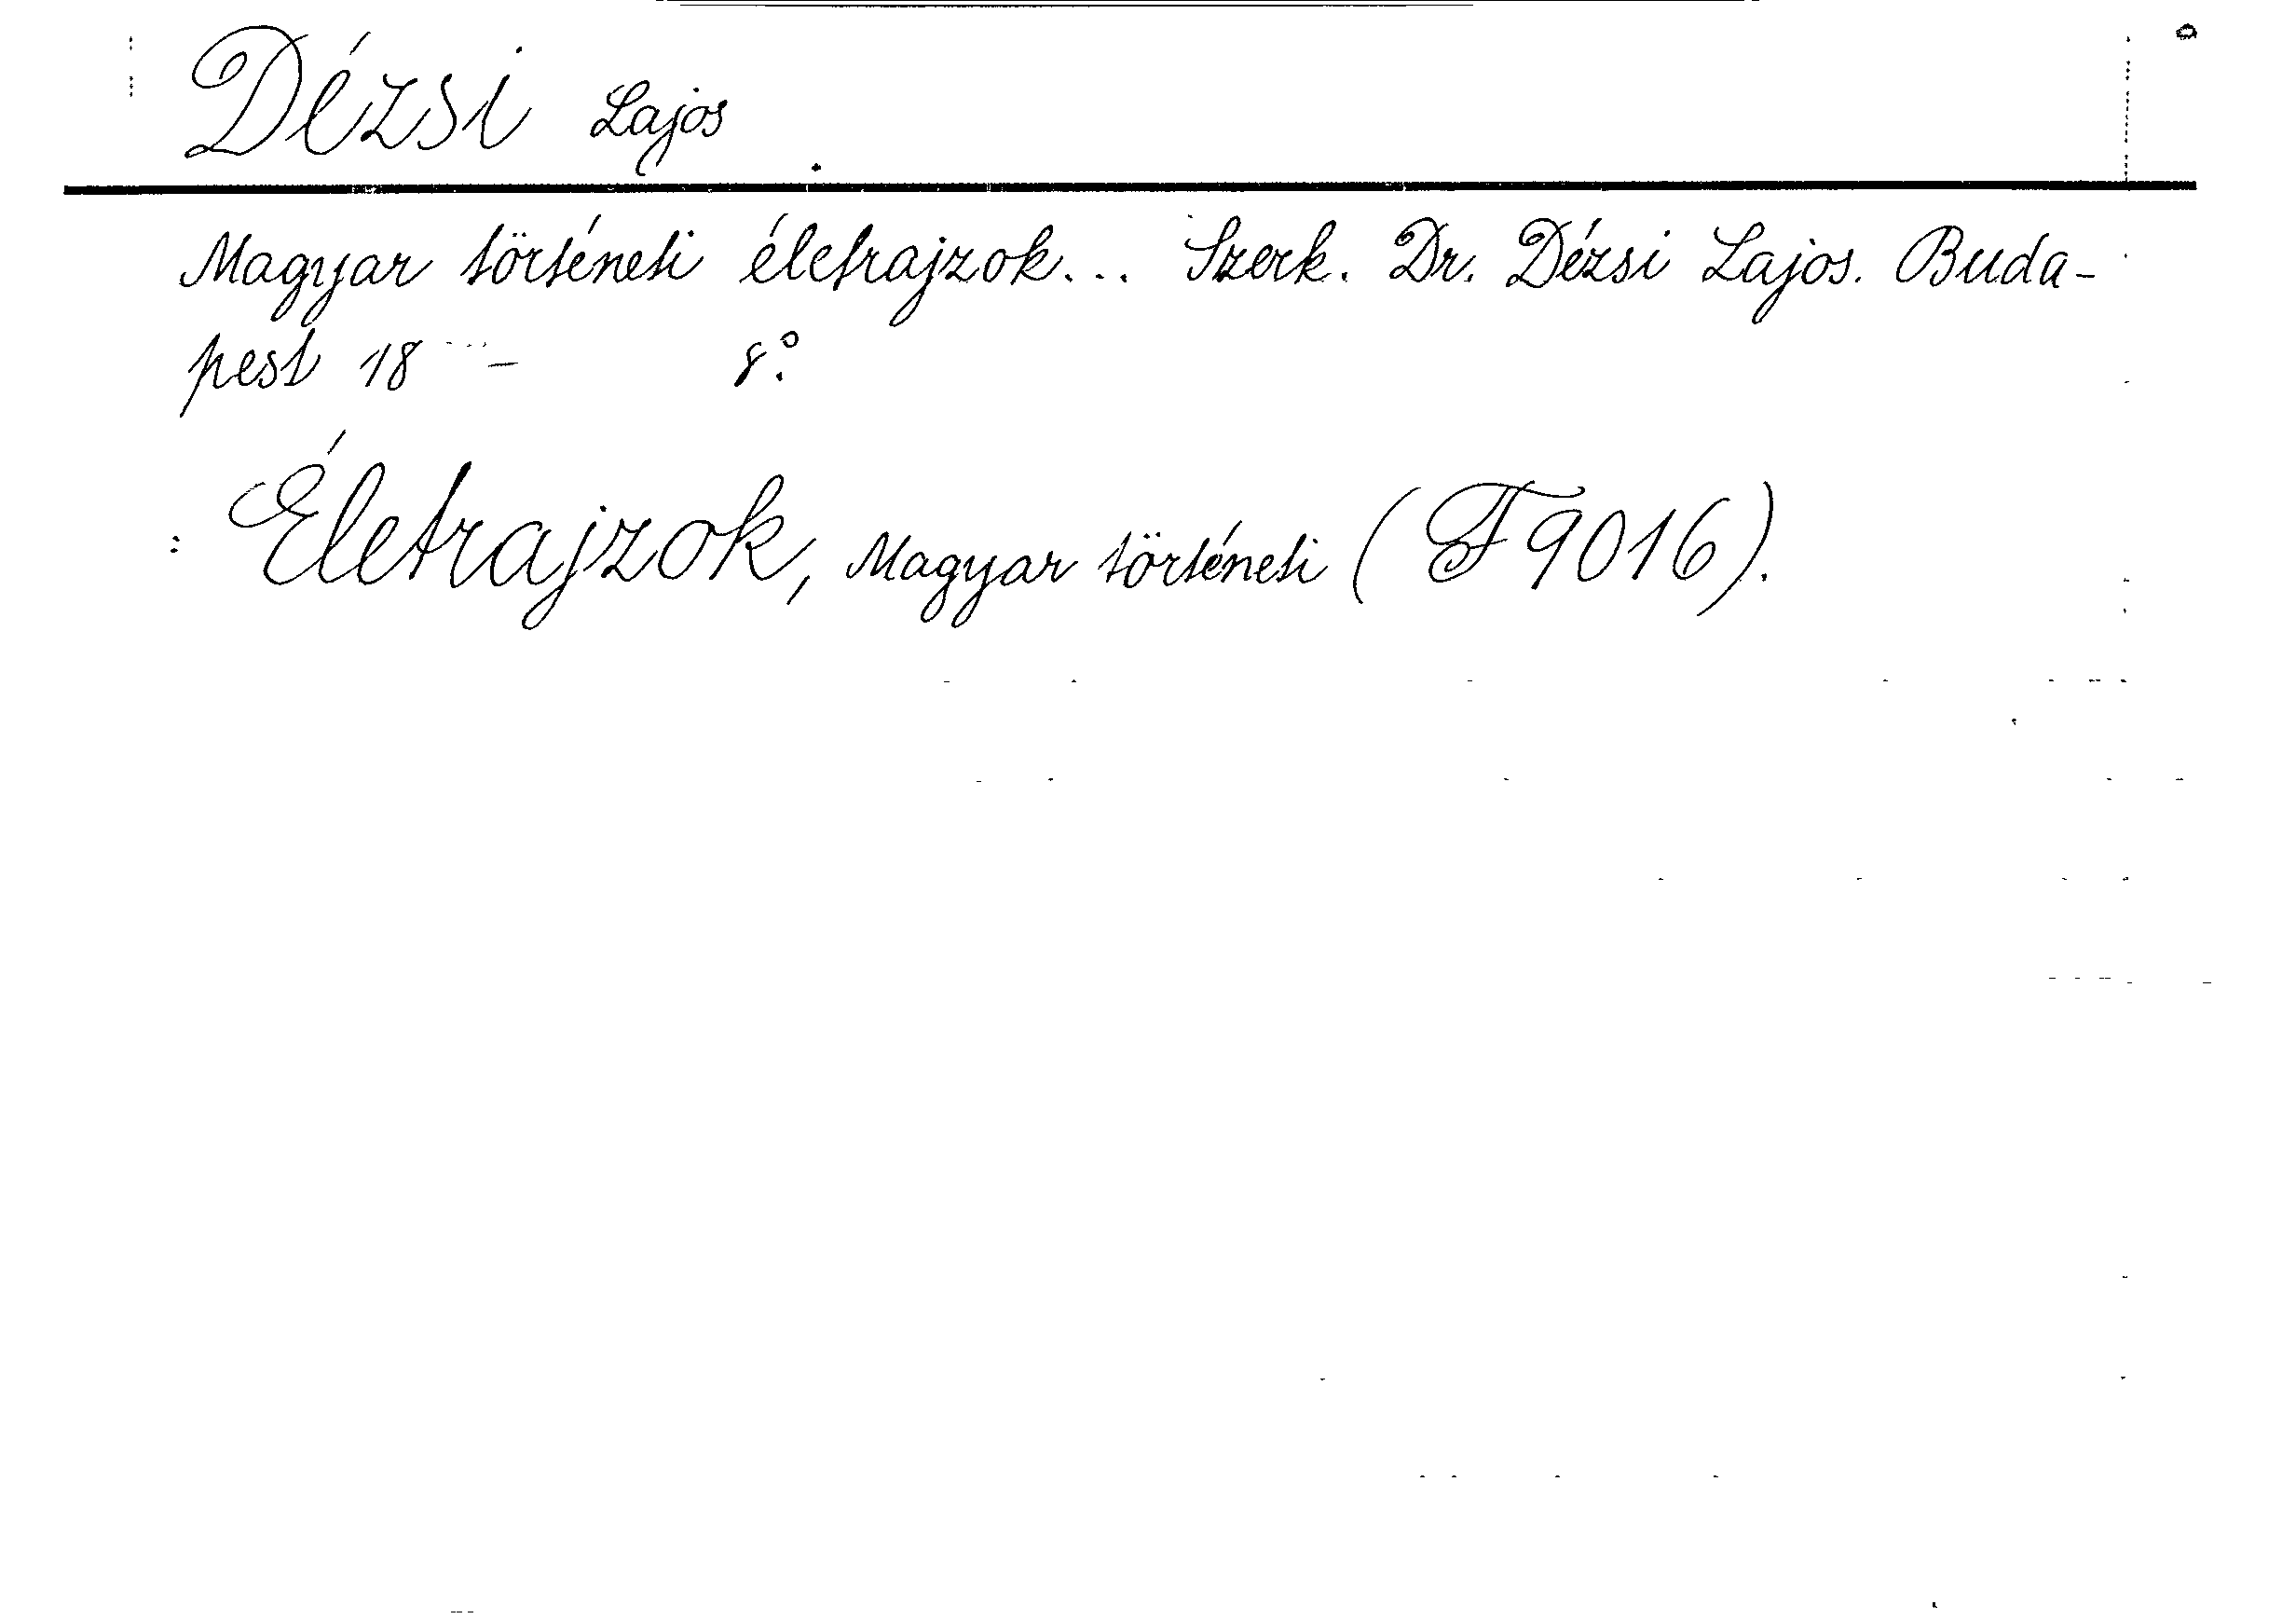 Dézsi Lajos
Magyar történeti életrajzok... Szerk. Dr. Dézsi Lajos. Buda-
pest 18 ... – 8.°
Életrajzok, Magyar történeti (F 9016).